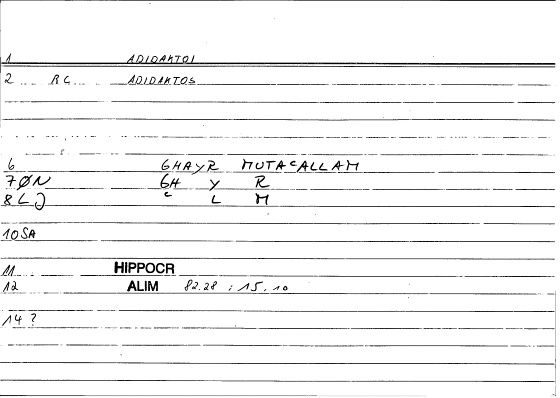 1 ADIDAKTOI
2 RC ADIDAKTOS
6 GHAYR MUTACALLAM
7 ØN GH Y R
8 L J C L M
10 SA
11 HIPPOCR
12 ALIM 82.28 : 15.10
14 ?